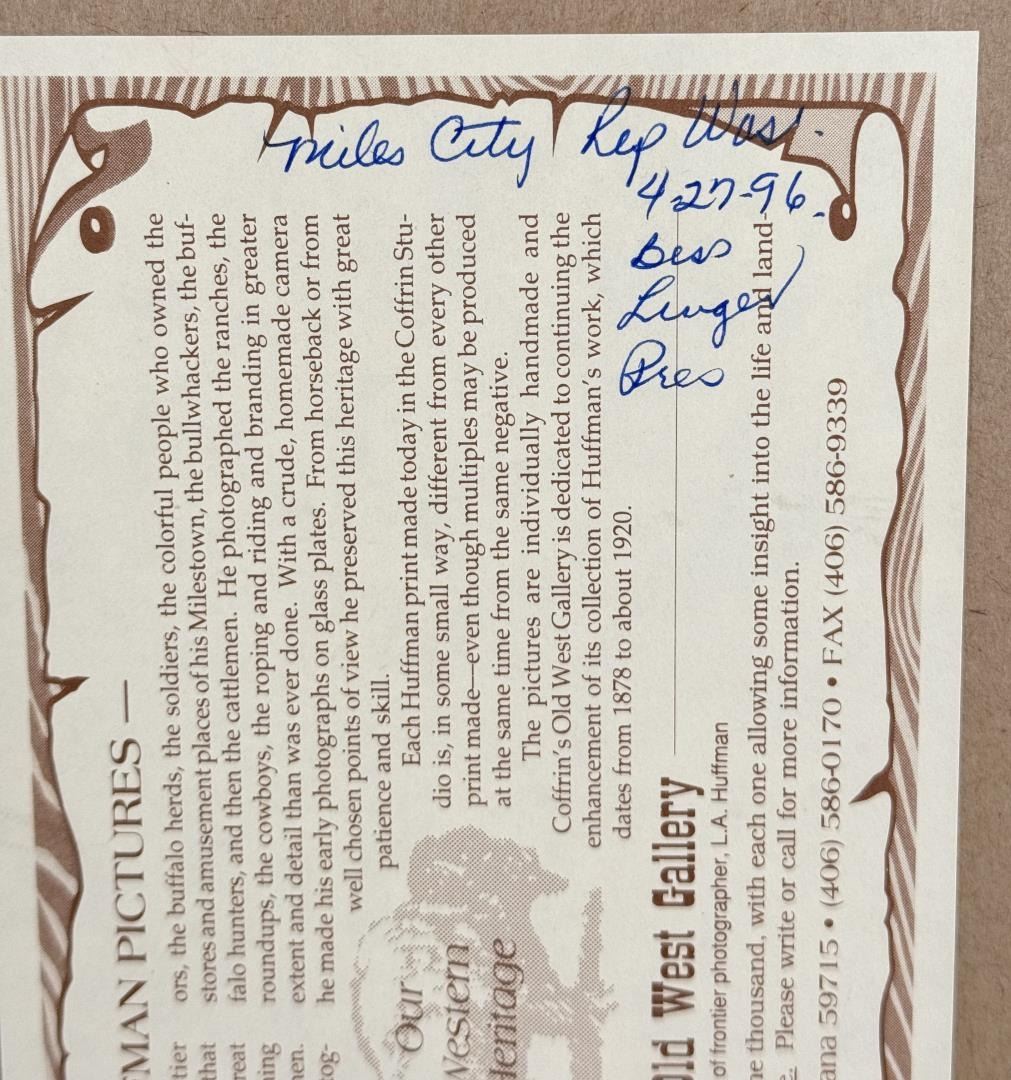 Miles City Rep Wos.
4-27-96
Bess
Linger
Pres
TMAN PICTURES —
tier
that
reat
ning
nen.
tog-
ors, the buffalo herds, the soldiers, the colorful people who owned the
stores and amusement places of his Milestown, the bullwhackers, the buf-
falo hunters, and then the cattlemen. He photographed the ranches, the
roundups, the cowboys, the roping and riding and branding in greater
extent and detail than was ever done. With a crude, homemade camera
he made his early photographs on glass plates. From horseback or from
well chosen points of view he preserved this heritage with great
patience and skill.
Each Huffman print made today in the Coffrin Stu-
dio is, in some small way, different from every other
print made—even though multiples may be produced
at the same time from the same negative.
The pictures are individually handmade and
Coffrin's Old West Gallery is dedicated to continuing the
enhancement of its collection of Huffman's work, which
dates from 1878 to about 1920.
Our
Western
Heritage
Old West Gallery
of frontier photographer, L.A. Huffman
ne thousand, with each one allowing some insight into the life and land-
e. Please write or call for more information.
ana 59715 • (406) 586-0170 • FAX (406) 586-9339